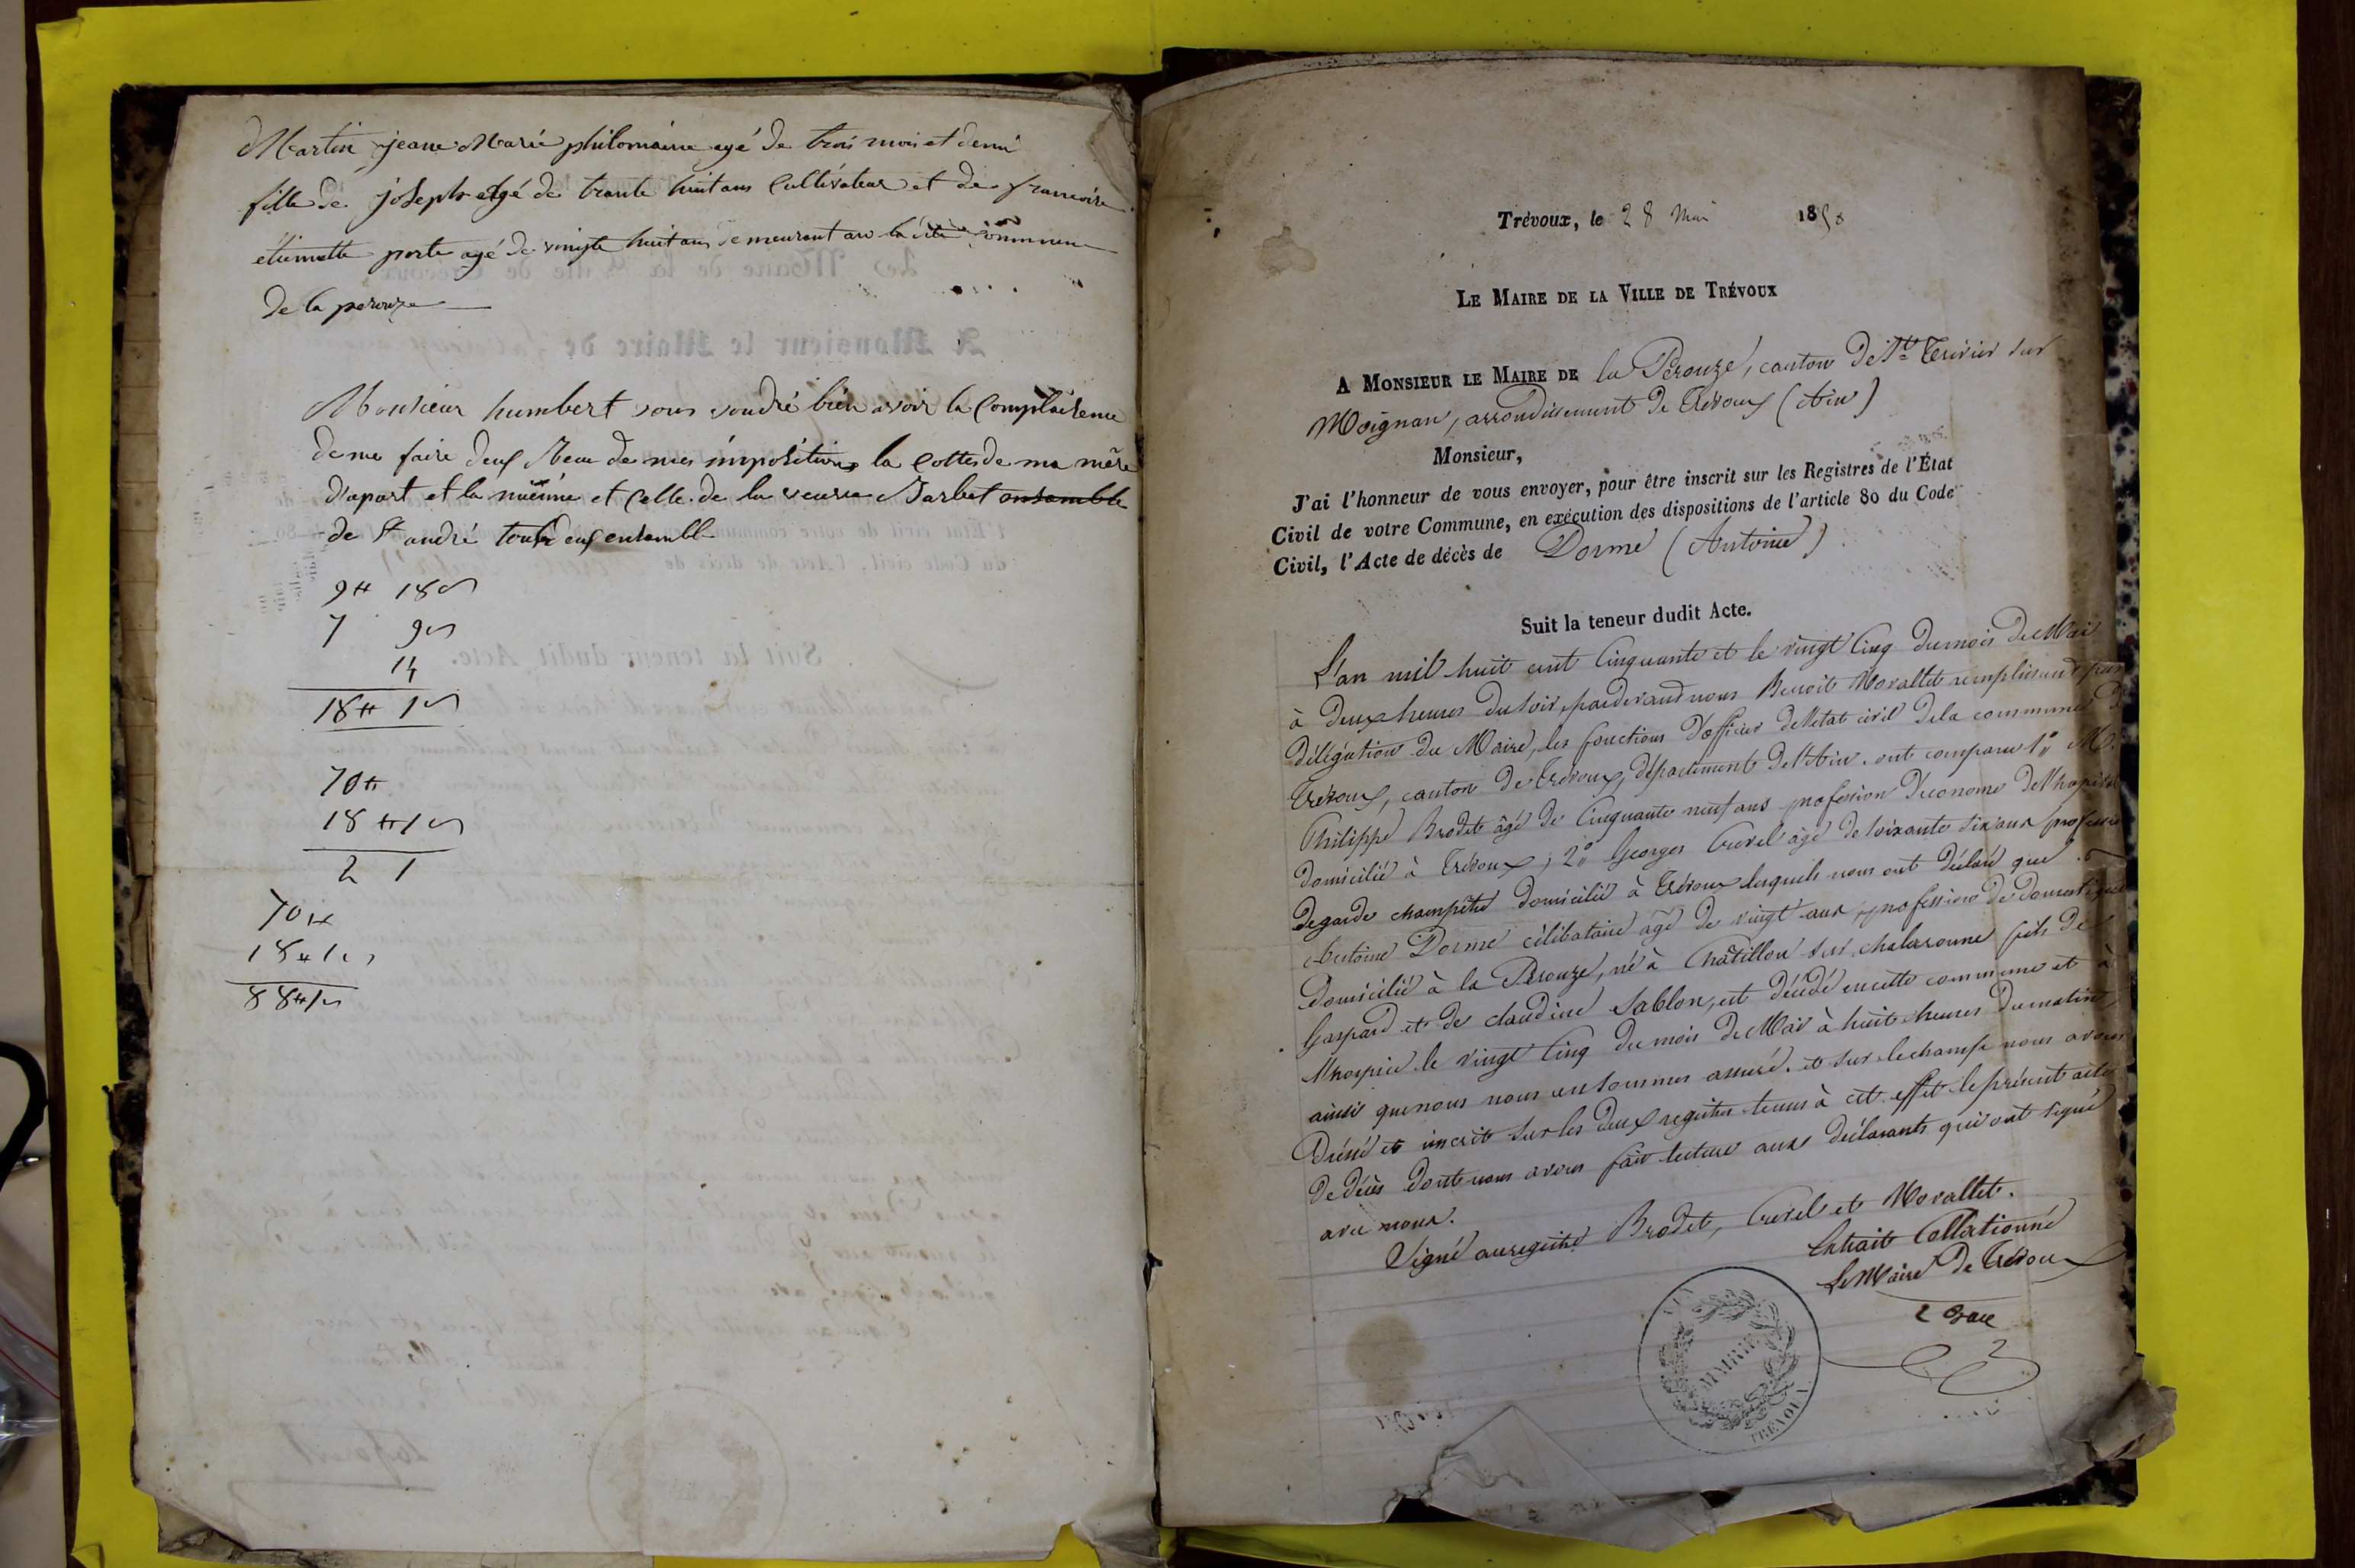 Martin jeane Marie philomaine agé de trois mois et demi
fille de joseph agé de trante huit ans Cultivateur et de francoise
étiennette porte agé de vingte huit ans demeurant au
de la perouze
Monsieur humbert vous voudré bien avoir la Complaisence
de me faire deux de mes impositions la Cottes de ma mère
d'apart et la mienne et Celle de la veuve Barbet ensemble
de St andré tout deux ensemble
9 18
7 9
14
18 1
70
18 1
2 1
70
18 1
88 1
Trévoux, le 28 Mai 1850
LE MAIRE DE LA VILLE DE TRÉVOUX
A MONSIEUR LE MAIRE DE la Pérouze, canton de St Trivier sur
Moignan, arrondissement de Trévoux (Ain)
Monsieur,
J'ai l'honneur de vous envoyer, pour être inscrit sur les Registres de l'État
Civil de votre Commune, en exécution des dispositions de l'article 80 du Code
Civil, l'Acte de décès de Dorme (Antoine)
Suit la teneur dudit Acte.
L'an mil huit cent Cinquante et le vingt Cinq du mois de Mai
à deux heures du soir, pardevant nous Benoit Morallet remplissant par
délégation du Maire, les fonctions d'officier de l'état civil de la commune de
Trévoux, canton de Trévoux, département de l'Ain. ont comparu 1° M.
Philippe Brodet âgé de Cinquante neuf ans profession d'économe de l'hopital
domicilié à Trévoux; 2° Georges Curel âgé de soixante six ans profession
de garde champêtre domicilié à Trévoux lesquels nous ont déclaré que
Antoine Dorme célibataire âgé de vingt ans profession de domestique
domicilié à la Pérouze, né à Châtillon sur chalaronne fils de
Gaspard et de claudine Sablon, est décédé en cette commune et à
l'hospice le vingt Cinq du mois de Mai à huit heures du matin,
ainsi que nous nous en sommes assuré. et sur le champ nous avons
dressé et inscrit sur les deux registres tenus à cet effet le présent acte
de décès dont nous avons fait lecture aux déclarants qui ont signé
avec nous.
Signé au registre Brodet, Curel et Morallet.
Extrait Collationné
Le Maire de Trévoux
MAIRIE
TREVOUX